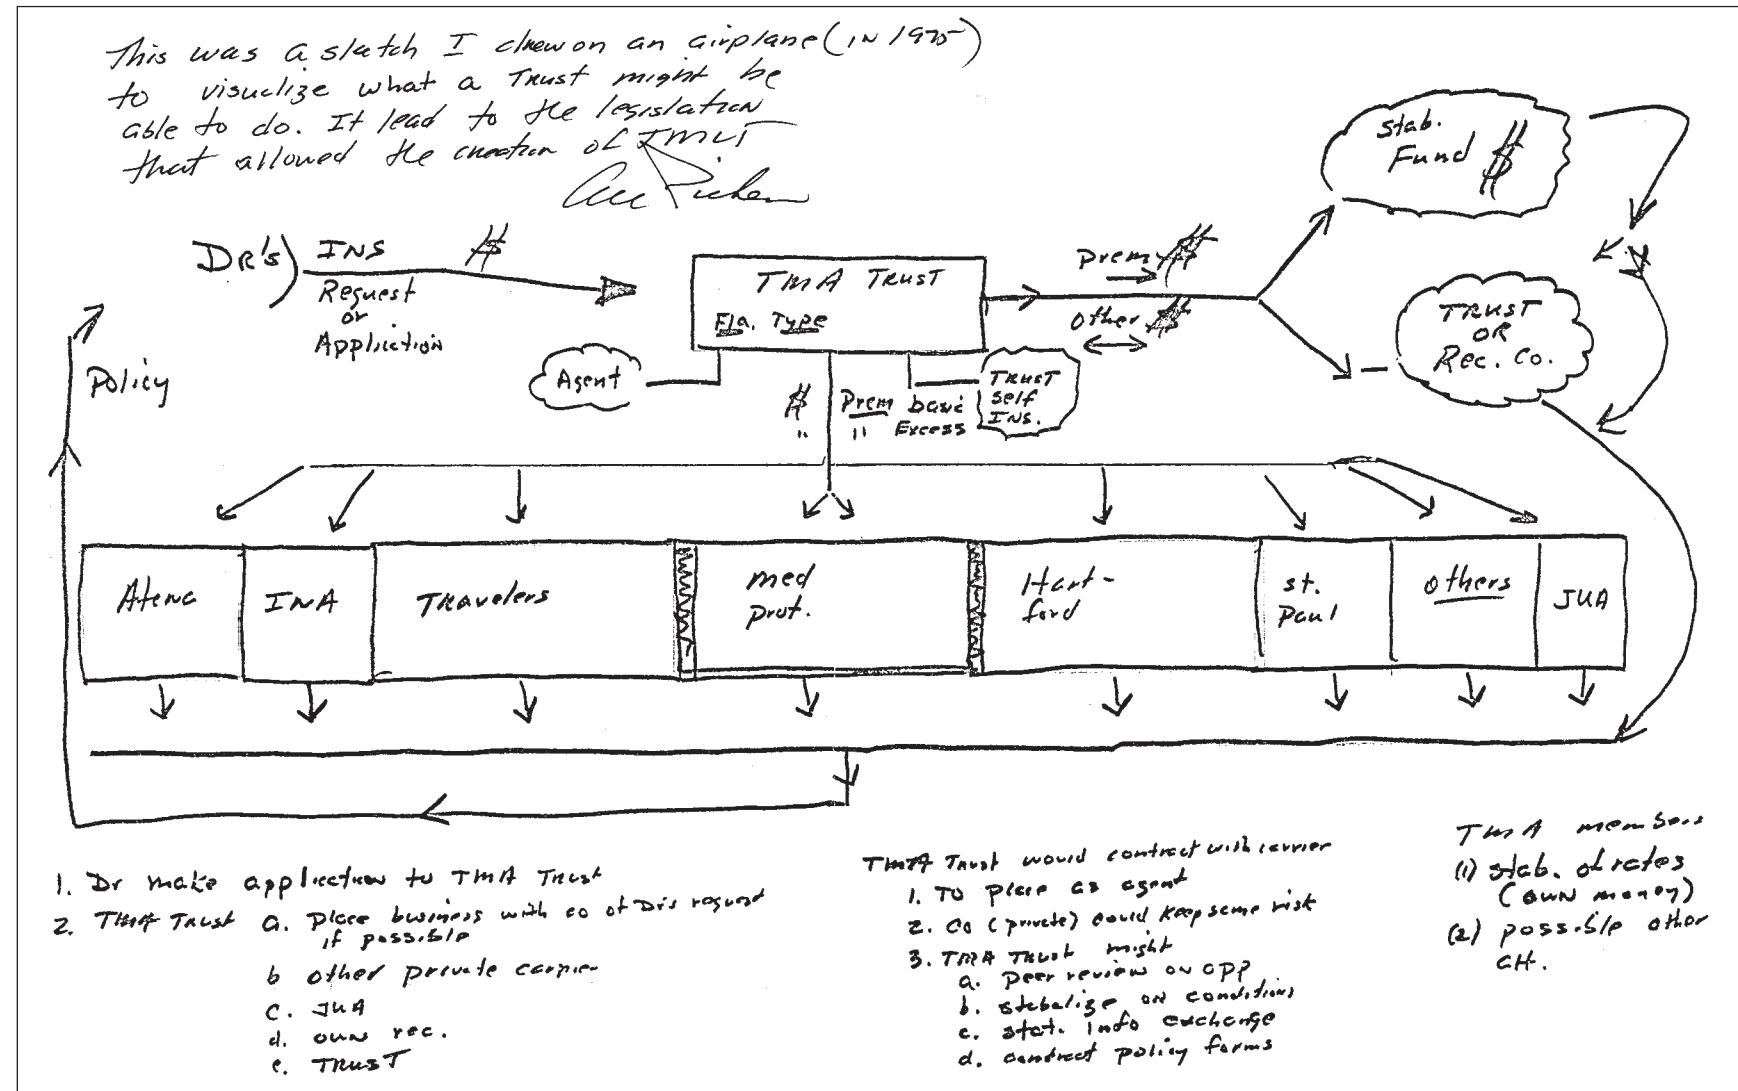 This was a sketch I drew on an airplane (IN 1975)
to visualize what a Trust might be
able to do. It lead to the legislation
that allowed the creation of TMLT
Stab.
Fund $
DR's) INS $
Request
or
Application
TMA TRUST
Fla. Type
Prem $
Other $
TRUST
OR
Rec. Co.
Policy
Agent
$ Prem basic
" " Excess
TRUST
self
INS.
Atena
INA
TRavelers
med
prot.
Hart-
ford
st.
Paul
others
JUA
1. Dr make application to TMA Trust
2. TMA Trust a. place business with co of Dr's request
if possible
b other private carrier
c. JUA
d. own rec.
e. TRUST
TMA Trust would contract with carrier
1. TO place as agent
2. Co (private) could keep some risk
3. TMA Trust might
a. peer review on app
b. stabalize on conditions
c. stat. info exchange
d. contract policy forms
TMA members
(1) stab. of rates
(own money)
(2) possible other